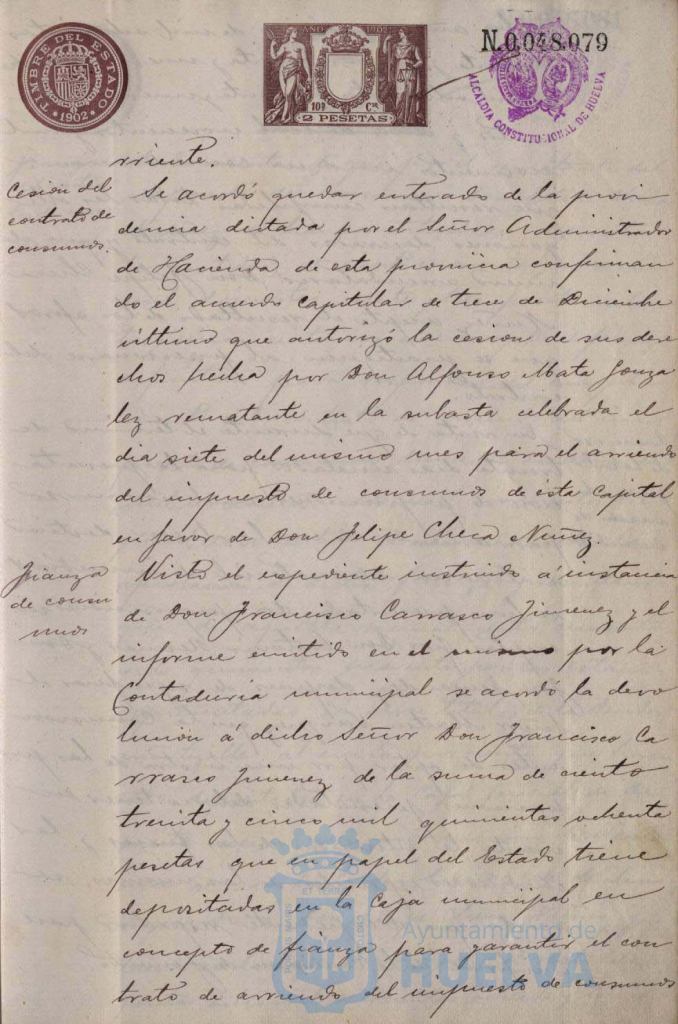 TIMBRE DEL ESTADO
1902
AÑO 1902
10ª Cse
2 PESETAS
N.0,048,079
ALCALDIA CONSTITUCIONAL DE HUELVA
rriente.
Cesion del
contrato de
consumos.
Se acordó quedar enterado de la provi
dencia dictada por el Señor Administrador
de Hacienda de esta provincia confirman
do el acuerdo capitular de trece de Diciembre
último que autorizó la cesion de sus dere
chos hecha por Don Alfonso Mata Gonza
lez rematante en la subasta celebrada el
dia siete del mismo mes para el arriendo
del impuesto de consumos de esta Capital
en favor de Don Felipe Checa Nuñez.
Fianza
de consu
mos
Visto el expediente instruido á instancia
de Don Francisco Carrasco Jimenez y el
informe emitido en el mismo por la
Contaduria municipal se acordó la devo
lucion á dicho Señor Don Francisco Ca
rrasco Jimenez de la suma de ciento
treinta y cinco mil quinientas ochenta
pesetas que en papel del Estado tiene
depositadas en la Caja municipal en
concepto de fianza para garantir el con
trato de arriendo del impuesto de consumos
Ayuntamiento de
HUELVA